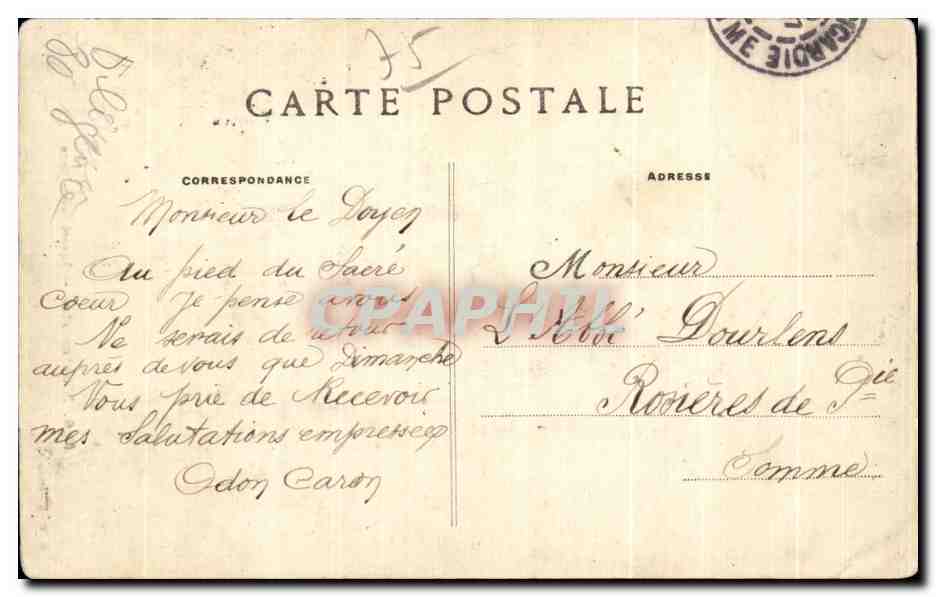 75
CARTE POSTALE
CORRESPONDANCE
Monsieur le Doyen
Au pied du Sacré
Coeur Je pense avous
Ne serais de retour
auprès de vous que Dimanche
Vous prie de Recevoir
mes Salutations empressées
Odon Caron
ADRESSE
Monsieur
L'Abbé Dourlens
Rosières de Pie
Somme
CPAPHIL